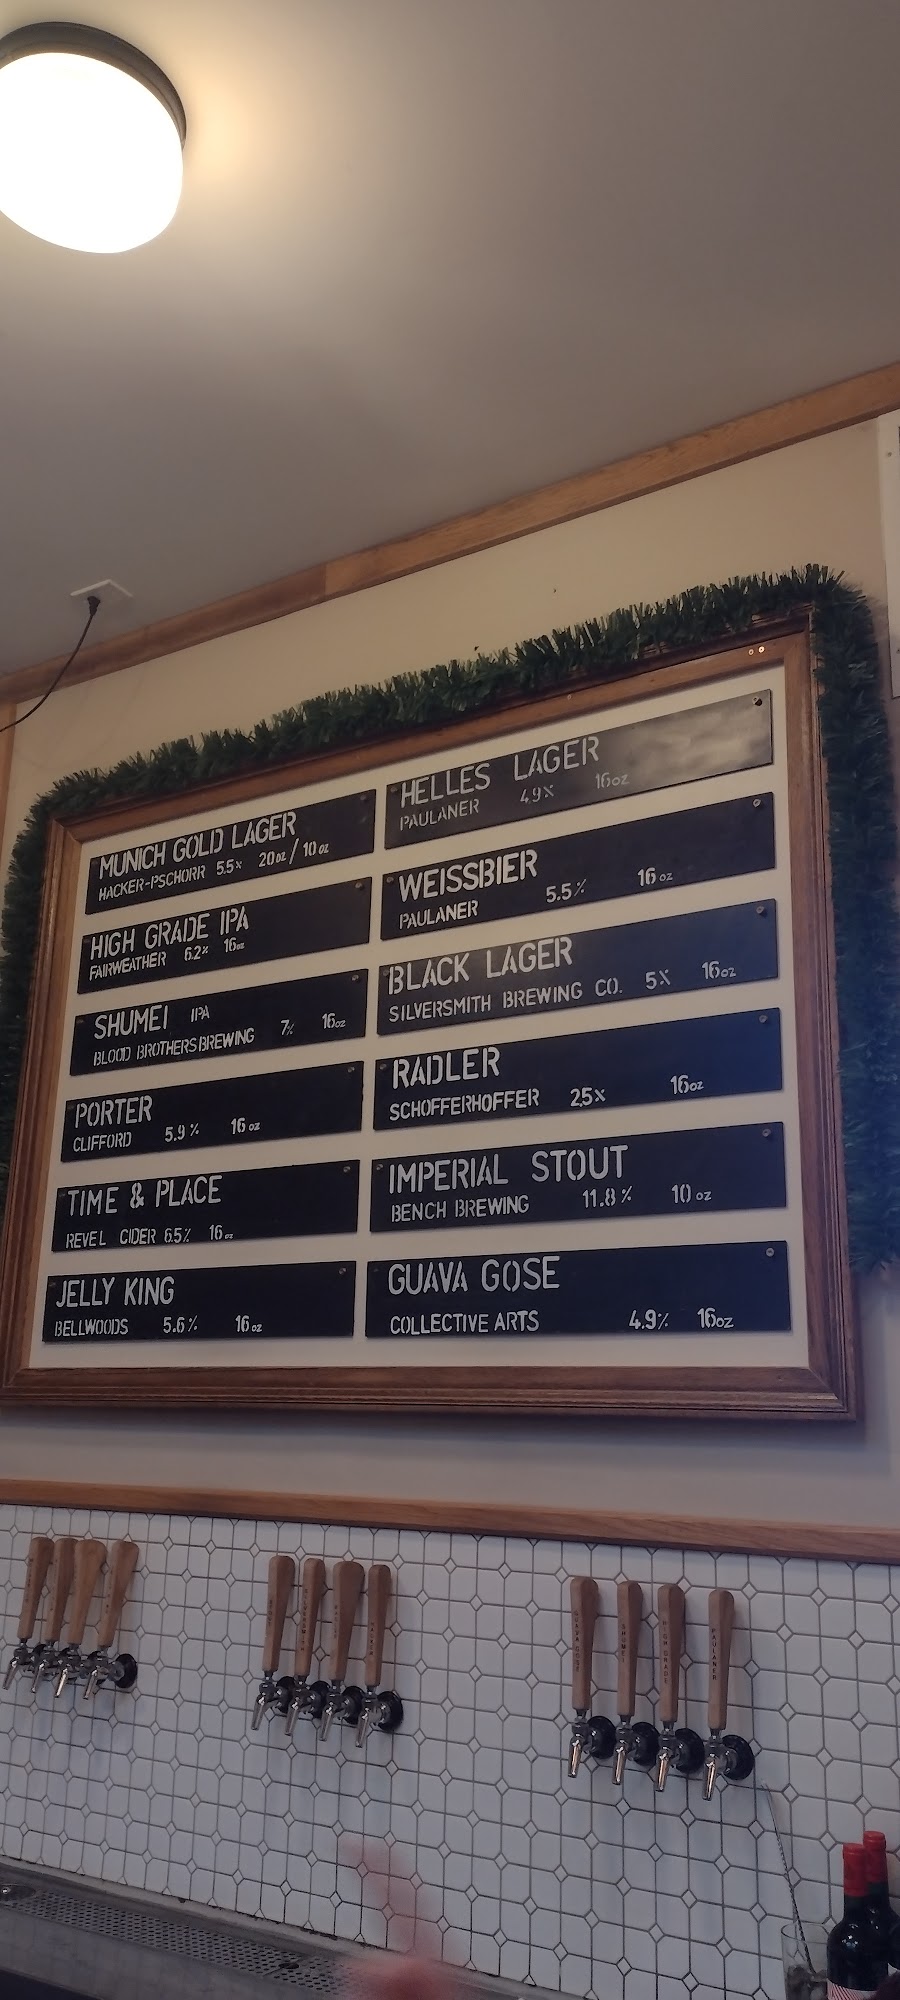 MUNICH GOLD LAGER
HACKER-PSCHORR 5.5% 20oz / 10oz
HIGH GRADE IPA
FAIRWEATHER 6.2% 16oz
SHUMEI IPA
BLOOD BROTHERS BREWING 7% 16oz
PORTER
CLIFFORD 5.9% 16oz
TIME & PLACE
REVEL CIDER 6.5% 16oz
JELLY KING
BELLWOODS 5.6% 16oz
HELLES LAGER
PAULANER 4.9% 16oz
WEISSBIER
PAULANER 5.5% 16oz
BLACK LAGER
SILVERSMITH BREWING CO. 5% 16oz
RADLER
SCHOFFERHOFFER 2.5% 16oz
IMPERIAL STOUT
BENCH BREWING 11.8% 10oz
GUAVA GOSE
COLLECTIVE ARTS 4.9% 16oz
GUAVA GOSE
SHUMEI
HIGH GRADE
PAULANER